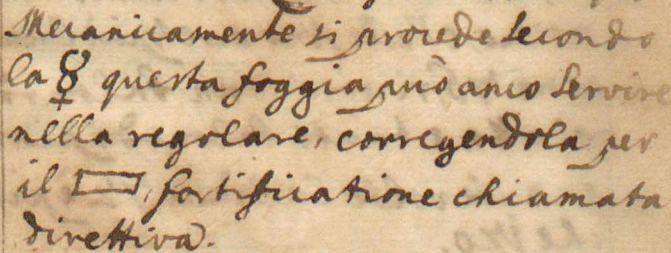 Mecanicamente si procede secondo
la ☿ questa foggia può anco servire
nella regolare, corregendola per
il ▭, fortificatione chiamata
direttiva.